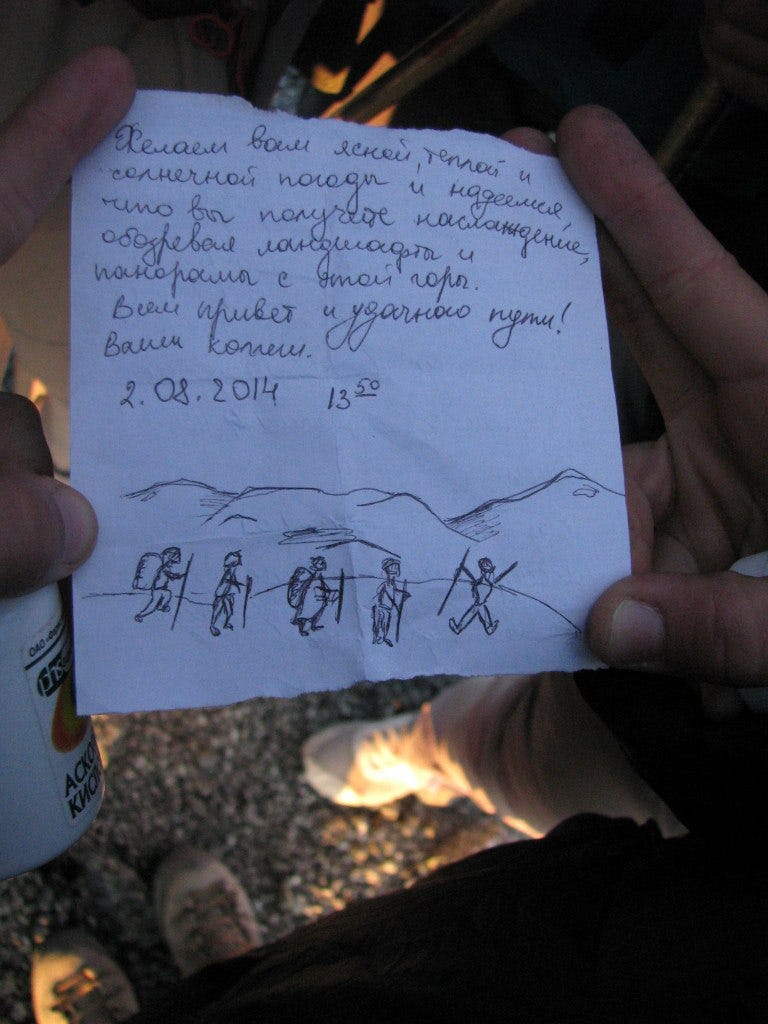 Желаем вам ясной, теплой и
солнечной погоды и надеемся,
что вы получете наслаждение,
обозревая ландшафты и
панорамы с этой горы.
Всем привет и удачного пути!
Ваши
2.08.2014 13 50
ОАО
АСКО
КИС